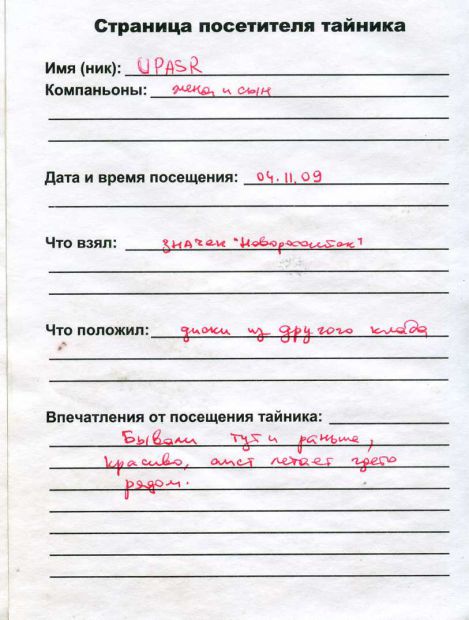 Страница посетителя тайника
Имя (ник): UPASR
Компаньоны: жена и сын
Дата и время посещения: 04.11.09
Что взял: значек "
Что положил: диски из другого клада
Впечатления от посещения тайника:
Бывали тут и раньше,
красиво, аист летает гдето
рядом.